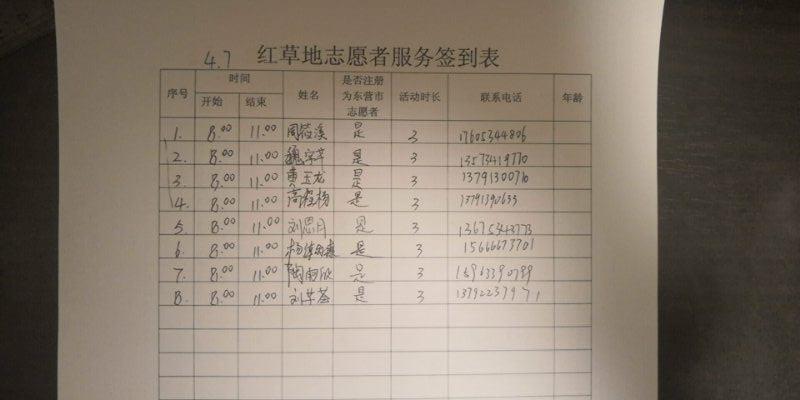 4.7 红草地志愿者服务签到表
序号 时间 姓名 是否注册为东营市志愿者 活动时长 联系电话 年龄
开始 结束
1. 8.00 11.00 周筱溪 是 3 17605344806
2. 8.00 11.00 魏字辛 是 3 13573419770
3. 8.00 11.00 黄玉龙 是 3 13791300710
4. 8.00 11.00 高程杨 是 3
5. 8.00 11.00 刘思月 是 3 13675343773
6. 8.00 11.00 杨 是 3 15666673701
7. 8.00 11.00 陶雨欣 是 3
8. 8.00 11.00 刘学荟 是 3 13792237971